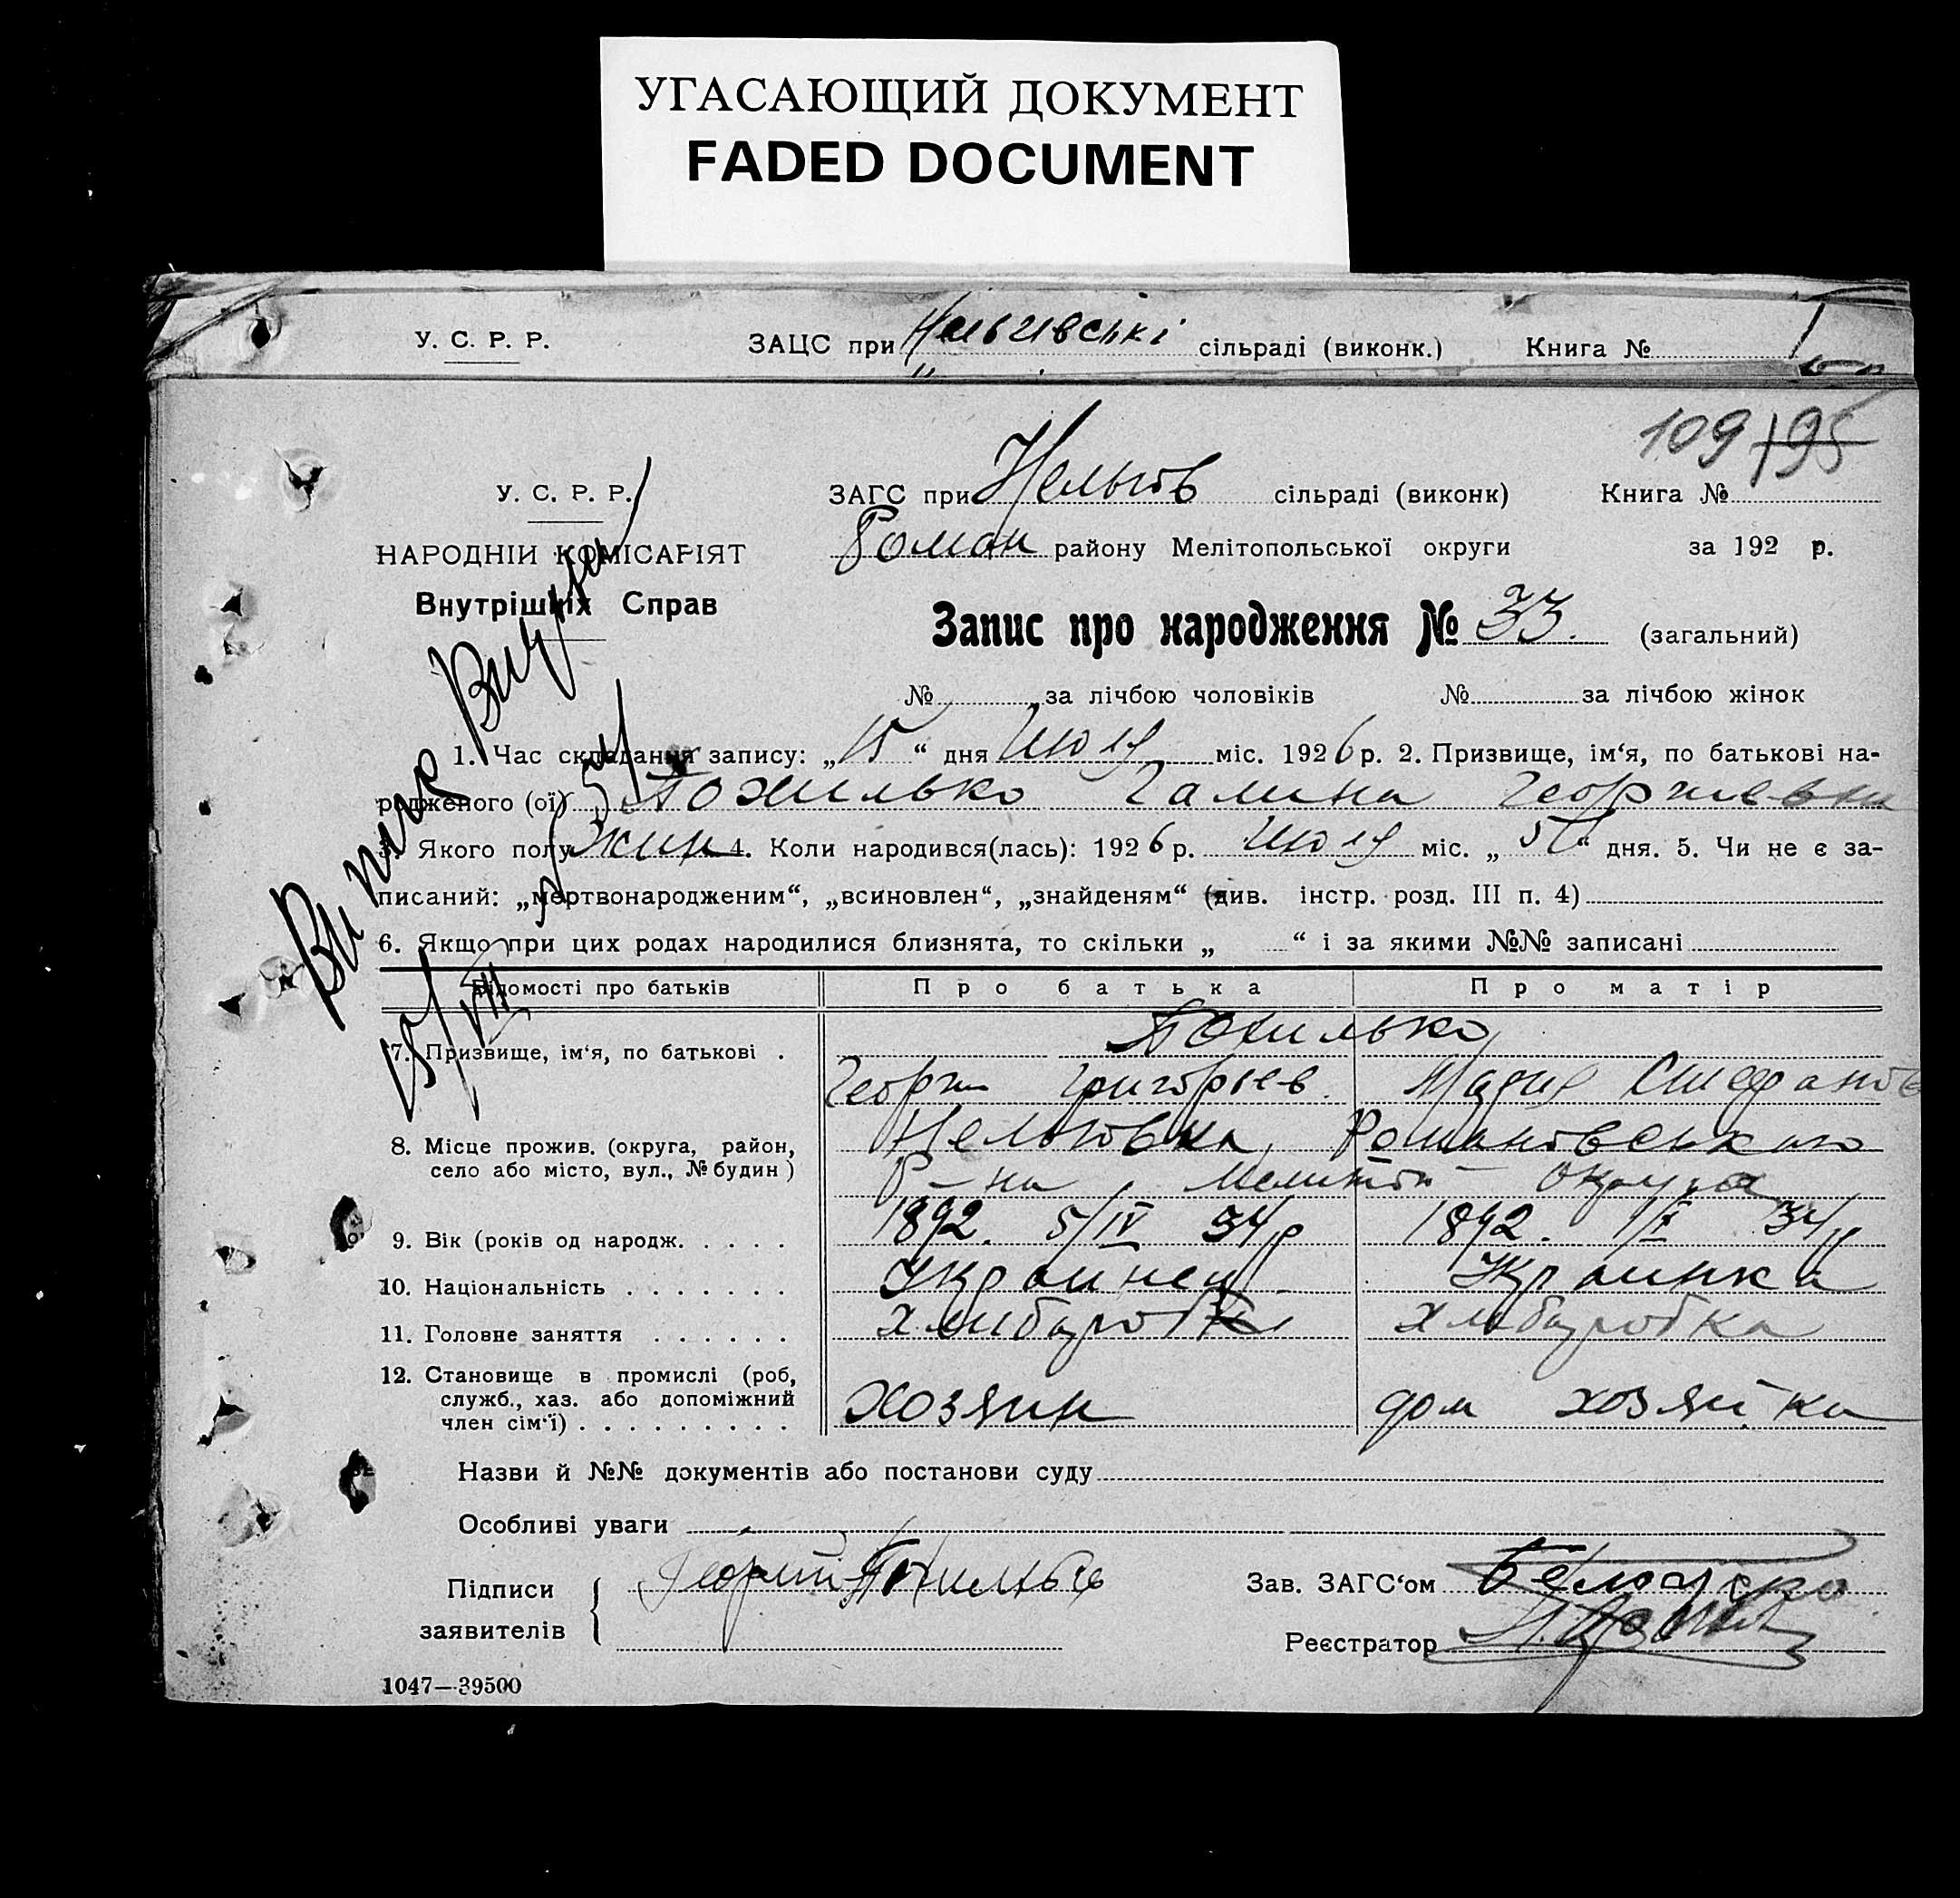 УГАСАЮЩИЙ ДОКУМЕНТ
FADED DOCUMENT
У. С. Р. Р. ЗАЦС при Нельгівські сільраді (виконк.) Книга №
109 195
У. С. Р. Р. ЗАГС при Нельгов сільраді (виконк) Книга №
НАРОДНІЙ КОМІСАРІЯТ Роман району Мелітопольської округи за 192 р.
Внутрішніх Справ
Запис про народження № 33. (загальний)
№ за лічбою чоловіків № за лічбою жінок
1. Час складання запису: „15“ дня Июля міс. 1926 р. 2. Призвище, ім‘я, по батькові на-
родженого (ої) Похилько Галина Георгиевна
3. Якого полу жин 4. Коли народився(лась): 1926 р. Июля міс. „5“ дня. 5. Чи не є за-
писаний: „мертвонародженим“, „всиновлен“, „знайденям“ (див. інстр. розд. III п. 4)
6. Якщо при цих родах народилися близнята, то скільки „ “ і за якими №№ записані
Відомості про батьків Про батька Про матір
Похилько
7. Призвище, ім‘я, по батькові . Георги Григорьев. Мария Стефанов
8. Місце прожив. (округа, район, село або місто, вул., № будин) Нельговка, Романовського
Р-на Мелитоп округа
9. Вік (років од народж. . . . . 1892. 5/IV 34 р 1892. 34 р
10. Національність . . . . . . . Украинец Украинка
11. Головне заняття . . . . . . хлибороб хлиборобка
12. Становище в промислі (роб,
служб., хаз. або допоміжний Хозяин дом хозяйка
член сім‘ї) . . . . . . . . .
Назви й №№ документів або постанови суду
Особливі уваги
Підписи Георгий Похилько Зав. ЗАГС‘ом
заявителів
Реєстратор
1047—39500